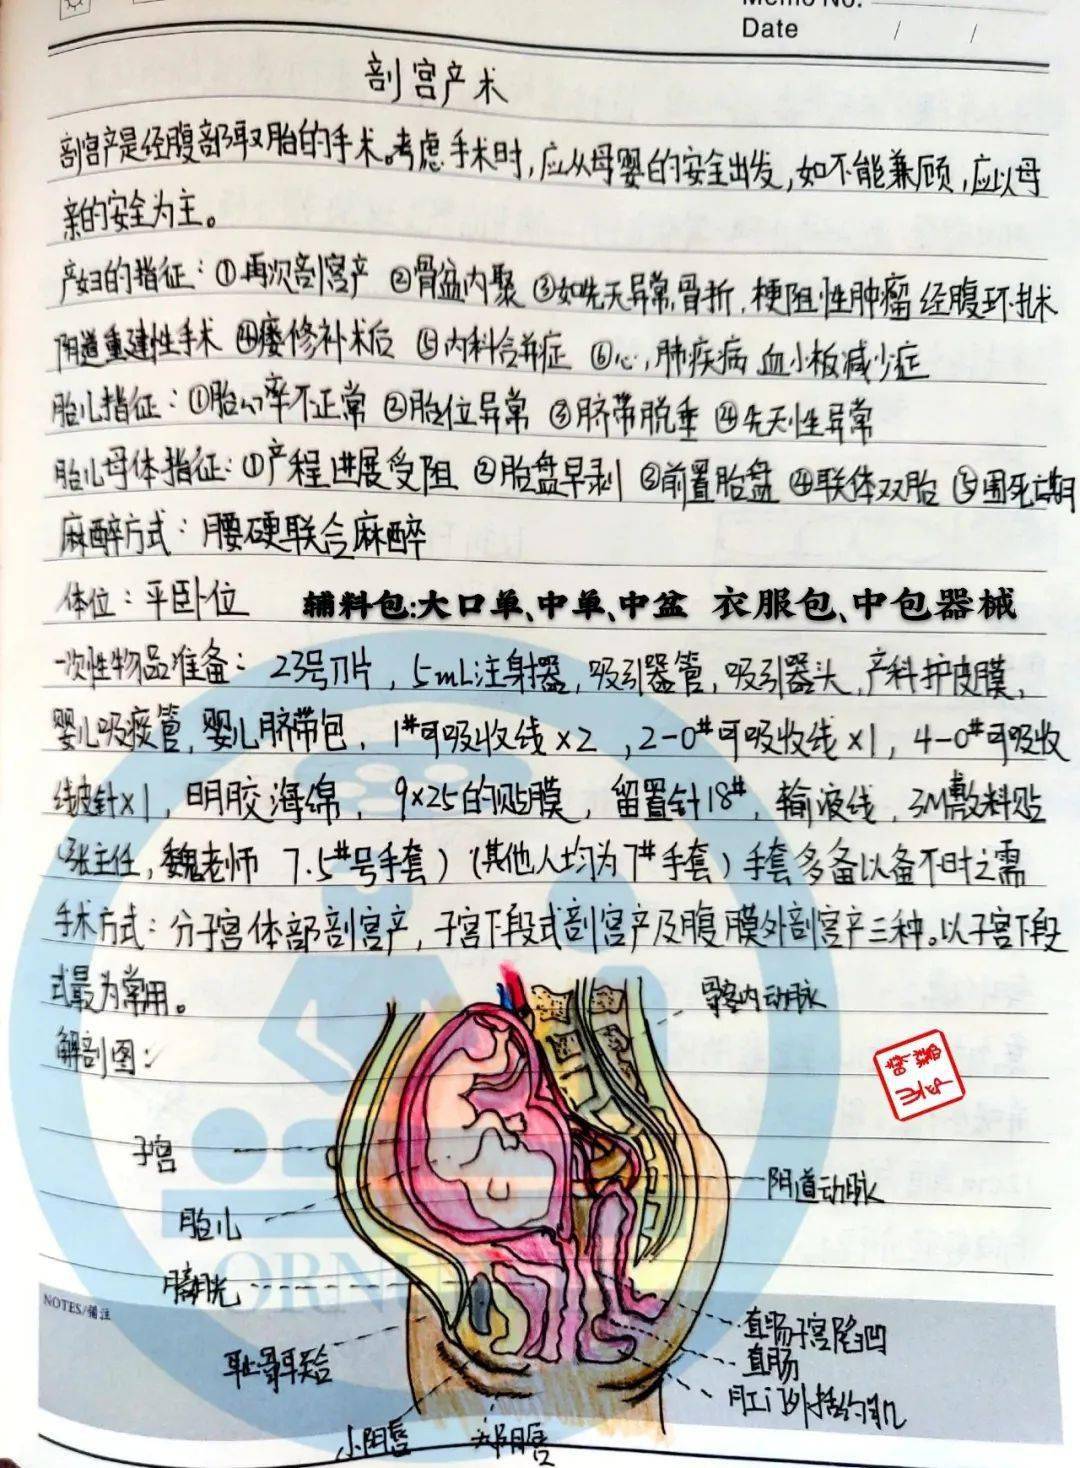 Memo No.
Date / /
剖宫产术
剖宫产是经腹部取胎的手术。考虑手术时,应从母婴的安全出发,如不能兼顾,应以母
亲的安全为主。
产妇的指征:①再次剖宫产 ②骨盆内聚 ③如先天异常,骨折,梗阻性肿瘤 经腹环扎术
阴道重建性手术 ④瘘修补术后 ⑤内科合并症 ⑥心,肺疾病 血小板减少症
胎儿指征:①胎心率不正常 ②胎位异常 ③脐带脱垂 ④先天性异常
胎儿母体指征:①产程进展受阻 ②胎盘早剥 ③前置胎盘 ④联体双胎 ⑤围死亡期
麻醉方式:腰硬联合麻醉
体位:平卧位 辅料包:大口单、中单、中盆 衣服包、中包器械
一次性物品准备:23号刀片,5mL注射器,吸引器管,吸引器头,产科护皮膜,
婴儿吸痰管,婴儿脐带包,1#可吸收线×2,2-0#可吸收线×1,4-0#可吸收
线皮针×1,明胶海绵,9×25的贴膜,留置针18#,输液线,3M敷料贴
(张主任,魏老师 7.5#号手套)(其他人均为7#手套)手套多备以备不时之需
手术方式:分子宫体部剖宫产,子宫下段式剖宫产及腹膜外剖宫产三种。以子宫下段
式最为常用。
解剖图:
髂内动脉
子宫
阴道动脉
胎儿
膀胱
NOTES/备注
直肠子宫陷凹
耻骨联合
直肠
肛门外括约肌
小阴唇
大阴唇